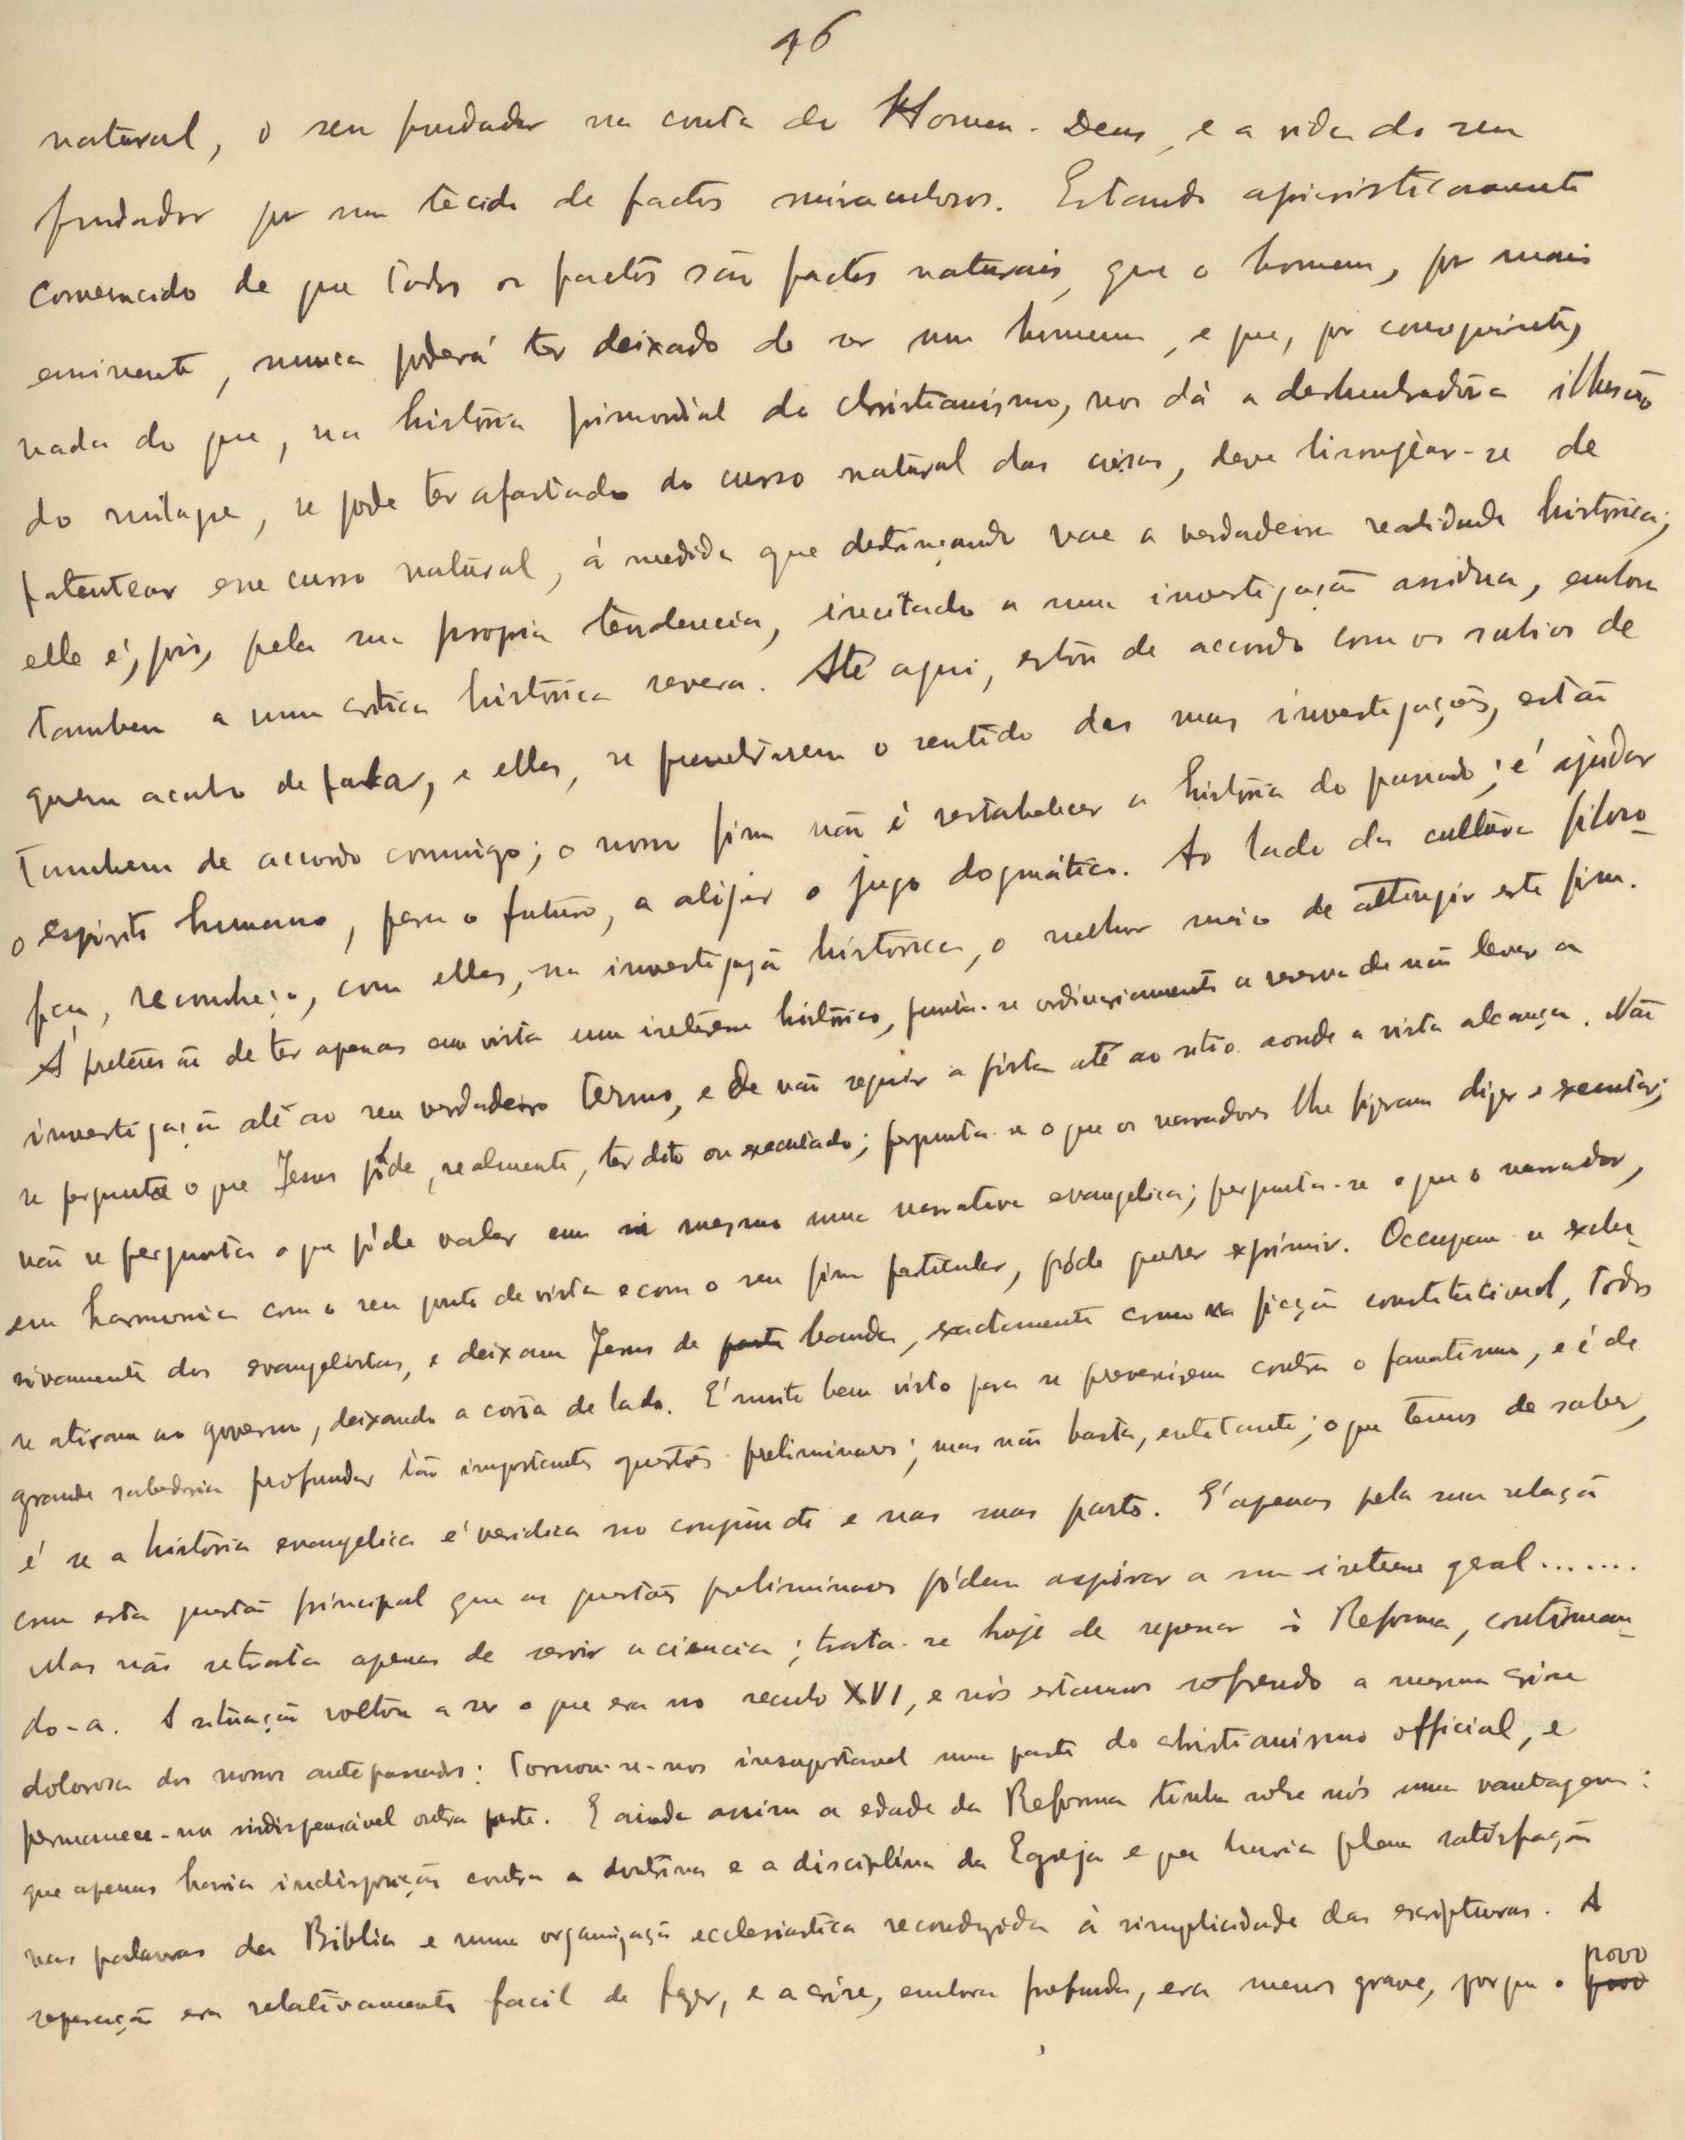 46
natural, o seu fundador na conta de Homem-Deus, e a vida do seu
fundador por um tecido de factos miraculosos. Estando aprioristicamente
convencido de que todos os factos são factos naturais, que o homem, por mais
eminente, nunca poderá ter deixado de ser um homem, e que, por conseguinte,
nada do que, na história primordial do christianismo, nos dá a deslumbradora illusão
do milagre, se pode ter afastado do curso natural das coisas, deve lisongear-se de
patentear esse curso natural, á medida que destrinçando vae a verdadeira realidade histórica;
elle é, pois, pela sua propria tendencia, incitado a uma investigação assidua, embora
tambem a uma crítica histórica severa. Até aqui, estou de accordo com os sabios de
quem acabo de falar, e elles, se penetrarem o sentido das suas investigações, estão
tambem de accordo commigo; o nosso fim não é restabelecer a história do passado; é ajudar
o espirito humano, para o futuro, a alijar o jugo dogmático. Ao lado da cultura filoso-
fica, reconheço, com elles, na investigação histórica, o melhor meio de attingir este fim.
Á pretensão de ter apenas em vista um interesse histórico, junta-se ordinariamente a reserva de não levar a
investigação até ao seu verdadeiro termo, e de não seguir a pista até ao sitio aonde a vista alcança. Não
se pergunta o que Jesus póde, realmente, ter dito ou executado; pergunta-se o que os narradores lhe fizeram dizer e executar;
não se pergunta o que póde valer em si mesmo uma narrativa evangelica; pergunta-se o que o narrador,
em harmonia com o seu ponto de vista e com o seu fim particular, póde querer exprimir. Occupam-se exclu-
sivamente dos evangelistas, e deixam Jesus de parte banda, exactamente como na ficção constitucional, todos
se atiram ao governo, deixando a corôa de lado. É muito bem visto para se prevenirem contra o fanatismo, e é de
grande sabedoria profundar tão importantes questões preliminares; mas não basta, entretanto; o que temos de saber,
é se a história evangelica é veridica no conjuncto e nas suas partes. É apenas pela sua relação
com esta questão principal que as questões preliminares pódem aspirar a um interesse geral.......
Mas não se trata apenas de servir a ciencia; trata-se hoje de repensar a Reforma, continuan-
do-a. A situação voltou a ser o que era no seculo XVI, e nós estamos soffrendo a mesma crise
dolorosa dos nossos antepassados: tornou-se-nos insuportavel uma parte do christianismo official, e
permanece-nos indispensável outra parte. E ainda assim a edade da Reforma tinha sobre nós uma vantagem:
que apenas havia indisposição contra a doutrina e a disciplina da Egreja e que havia plena satisfação
nas palavras da Biblia e numa organização ecclesiastica reconduzida á simplicidade das escripturas. A
separação era relativamente facil de fazer, e a crise, embora profunda, era menos grave, porque o povo